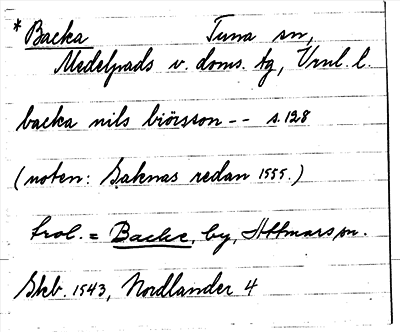 *Backa Tuna sn,
Medelpads v. doms. tg, Vnrl. l.
backa nils biörsson -- s. 128
(noten: Saknas redan 1555.)
trol. = Backe, by, Attmars sn.
Skb. 1543, Nordlander 4